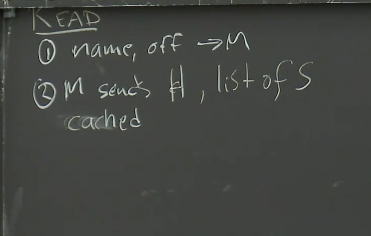 READ
① name, off → M
② M sends H, list of S
cached